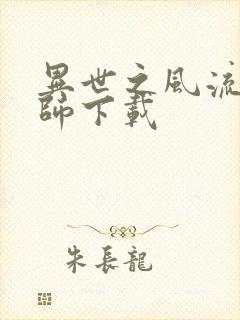 異世之風流
師下載
朱長龍